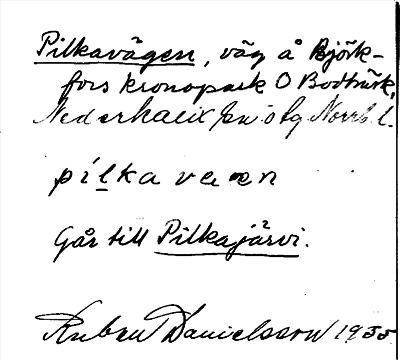 Pilkavägen, väg å Björk-
fors kronopark O Bodträsk,
Nederkalix sn o tg Norrb. l.
pilka vææn
Går till Pilkajärvi.
Ruben Danielsson 1935